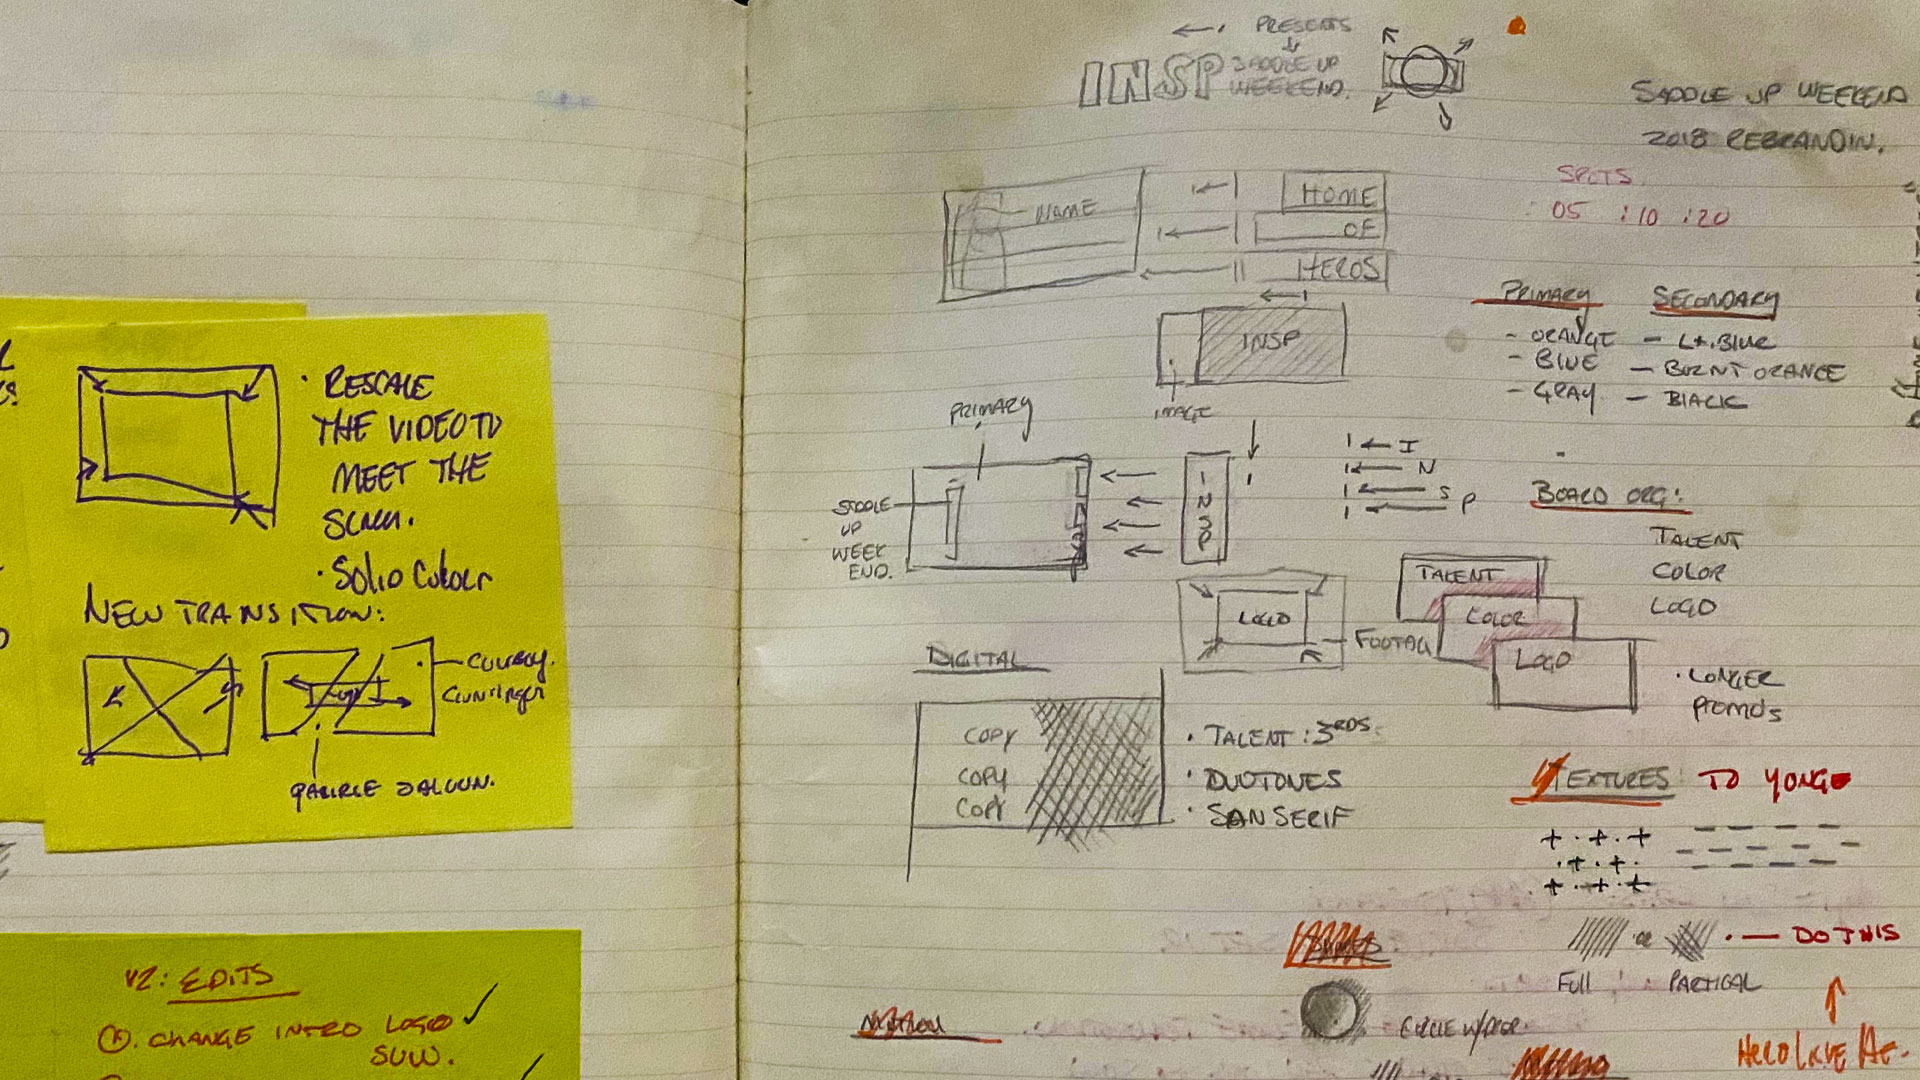 RESCALE
THE VIDEO TO
MEET THE
SCREEN.
SOLID COLOUR
NEW TRANSITION:
COWBOY.
GUNSLINGER
SALOON.
V2: EDITS
A. CHANGE INTRO LOGO ✓
SUW.
PRESENTS
INSP SADDLE UP
WEEKEND.
SADDLE UP WEEKEND
2018 REBRANDIN.
SPOTS
:05 :10 :20
NAME
HOME
OF
HEROS
INSP
IMAGE
PRIMARY SECONDARY
- ORANGE - LT. BLUE
- BLUE - BURNT ORANGE
- GRAY - BLACK
PRIMARY
SADDLE
UP
WEEK
END.
INSP
I
N
S
P
BOARD ORG:
TALENT
COLOR
LOGO
TALENT
COLOR
LOGO
LOGO
FOOTAG
• LONGER
PROMOS
DIGITAL
COPY
COPY
COPY
• TALENT: 3RDS.
• DUOTONES
• SAN SERIF
TEXTURES TO YONGE
+ · + · +
· + · + ·
+ · + · +
OR • — DO THIS
FULL PARTICAL
SHAPES
CIRCLE W/DROP.
MOTION